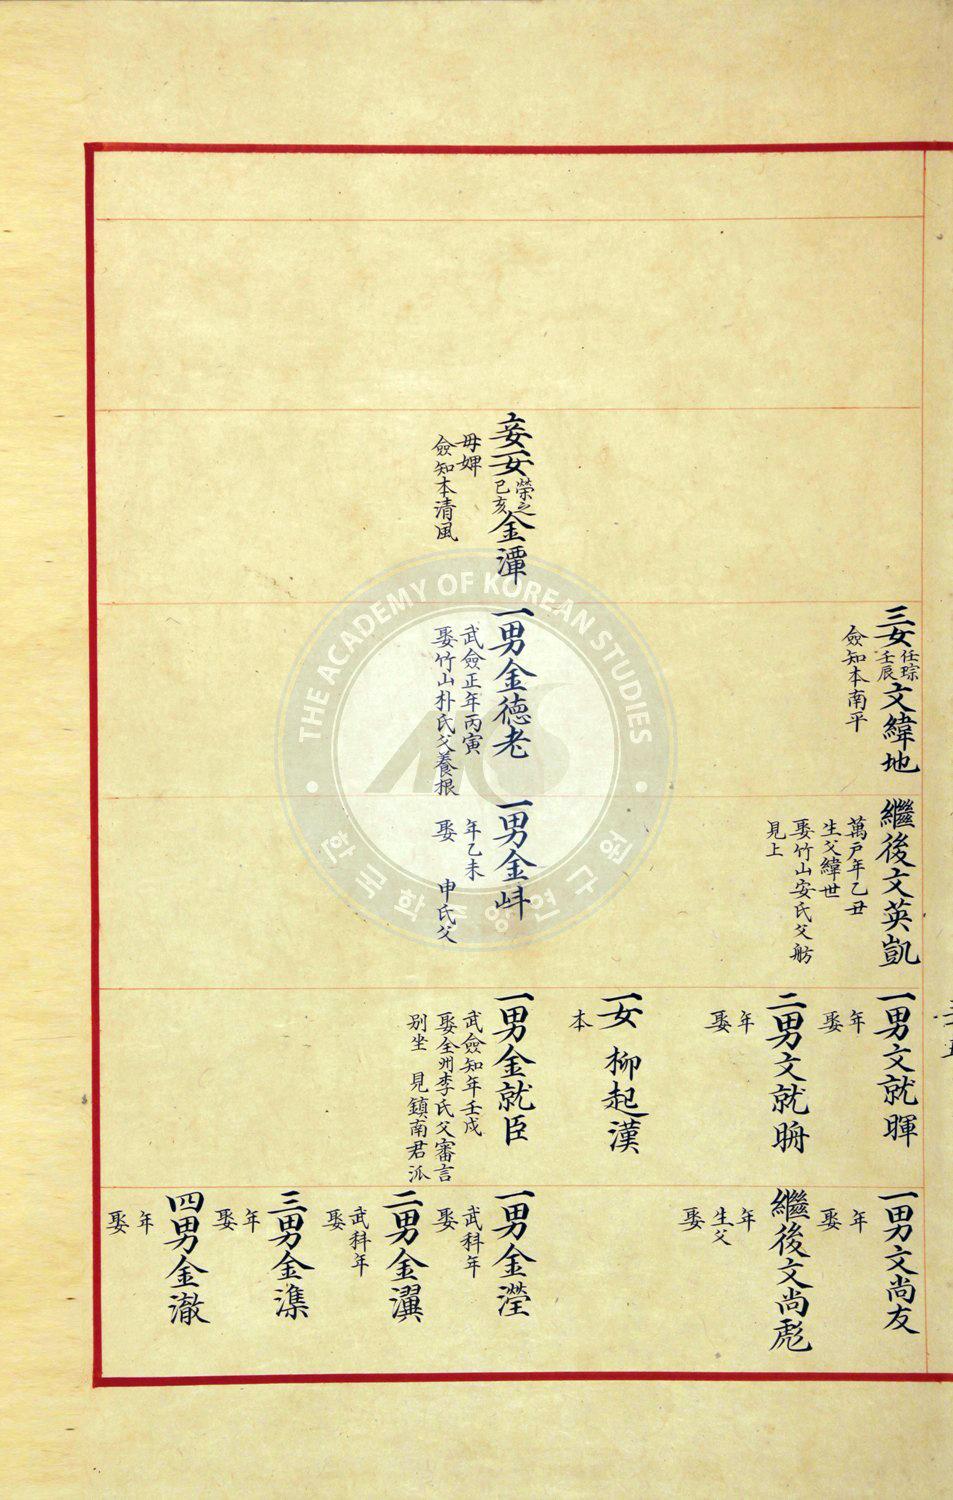 妾女 榮之 己亥 金潬
母婢
僉知本清風
三女 任琮 壬辰 文緯地
僉知本南平
一男金德老
武僉正年丙寅
娶竹山朴氏父養根
繼後文英凱
萬戶年乙丑
生父緯世
娶竹山安氏父舫
見上
一男金
年乙未
娶 申氏父
一男文就暉
年
娶
二男文就
年
娶
一女 柳起漢
本
一男金就臣
武僉知年壬戌
娶全州李氏父審言
別坐 見鎮南君派
一男文尚友
年
娶
繼後文尚彪
年
生父
娶
一男金瀅
武科年
娶
二男金瀷
武科年
娶
三男金潗
年
娶
四男金澈
年
娶
THE ACADEMY OF KOREAN STUDIES
한국학중앙연구원
AKS